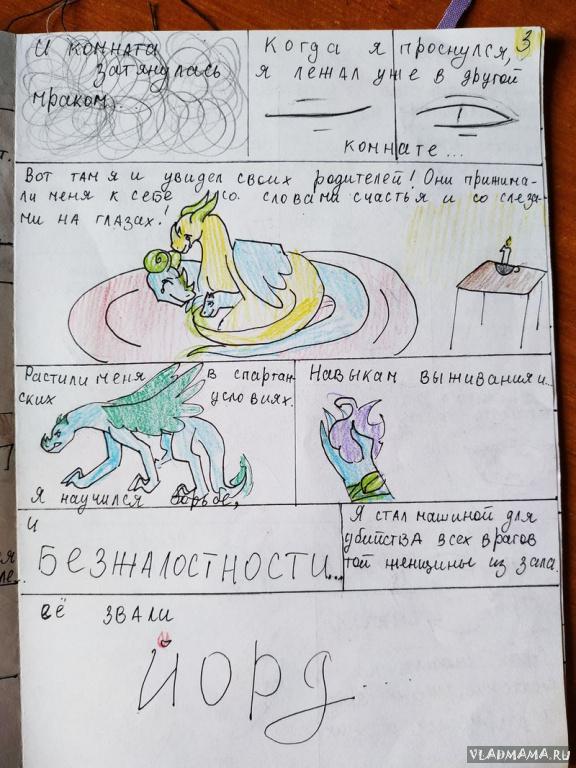 3
И комната
затянулась
мраком...
Когда я проснулся,
я лежал уже в другой
комнате...
Вот там я и увидел своих родителей! Они прижима-
ли меня к себе со словами счастья и со слеза-
ми на глазах!
Растили меня в спартан-
ских условиях.
Я научился борьбе,
Навыкам выживания и...
и
БЕЗЖАЛОСТНОСТИ...
Я стал машиной для
убийства всех врагов
той женщины из зала.
Её звали
Йорд...
VLADMAMA.RU